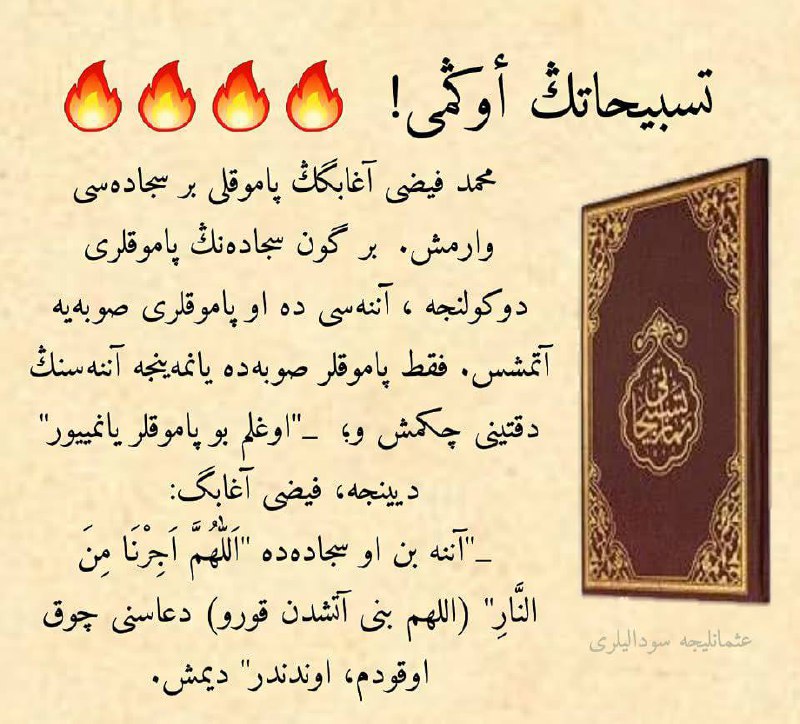 تسبیحاتڭ أوڭمی!
محمد فیضی آغابگڭ پاموقلی بر سجاده‌سی
وارمش. بر گون سجاده‌نڭ پاموقلری
دوکولنجه ، آننه‌سی ده او پاموقلری صوبه‌یه
آتمشس. فقط پاموقلر صوبه‌ده یانمه‌ینجه آننه‌سنڭ
دقتینی چکمش و؛ _"اوغلم بو پاموقلر یانمییور"
دیینجه، فیضی آغابگ:
_"آننه بن او سجاده‌ده "اَللّٰهُمَّ اَجِرْنَا مِنَ
النَّارِ" (اللهم بنی آتشدن قورو) دعاسنی چوق
اوقودم، اوندندر" دیمش.
نماز تسبیحاتی
عثمانلیجه سودالیلری